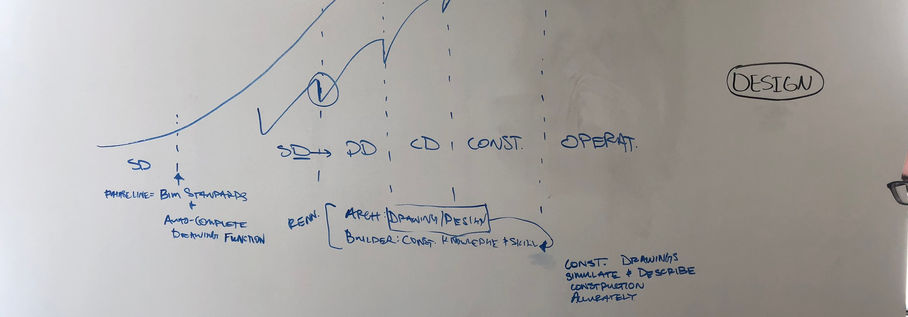 DESIGN
SD
SD → DD CD CONST. OPERAT.
PHASE LINE = BIM STANDARDS
+
AUTO-COMPLETE
DRAWING FUNCTION
RENN. ARCH: DRAWING/DESIGN
BUILDER: CONST. KNOWLEDGE + SKILL
CONST. DRAWINGS
SIMULATE + DESCRIBE
CONSTRUCTION
ACCURATELY